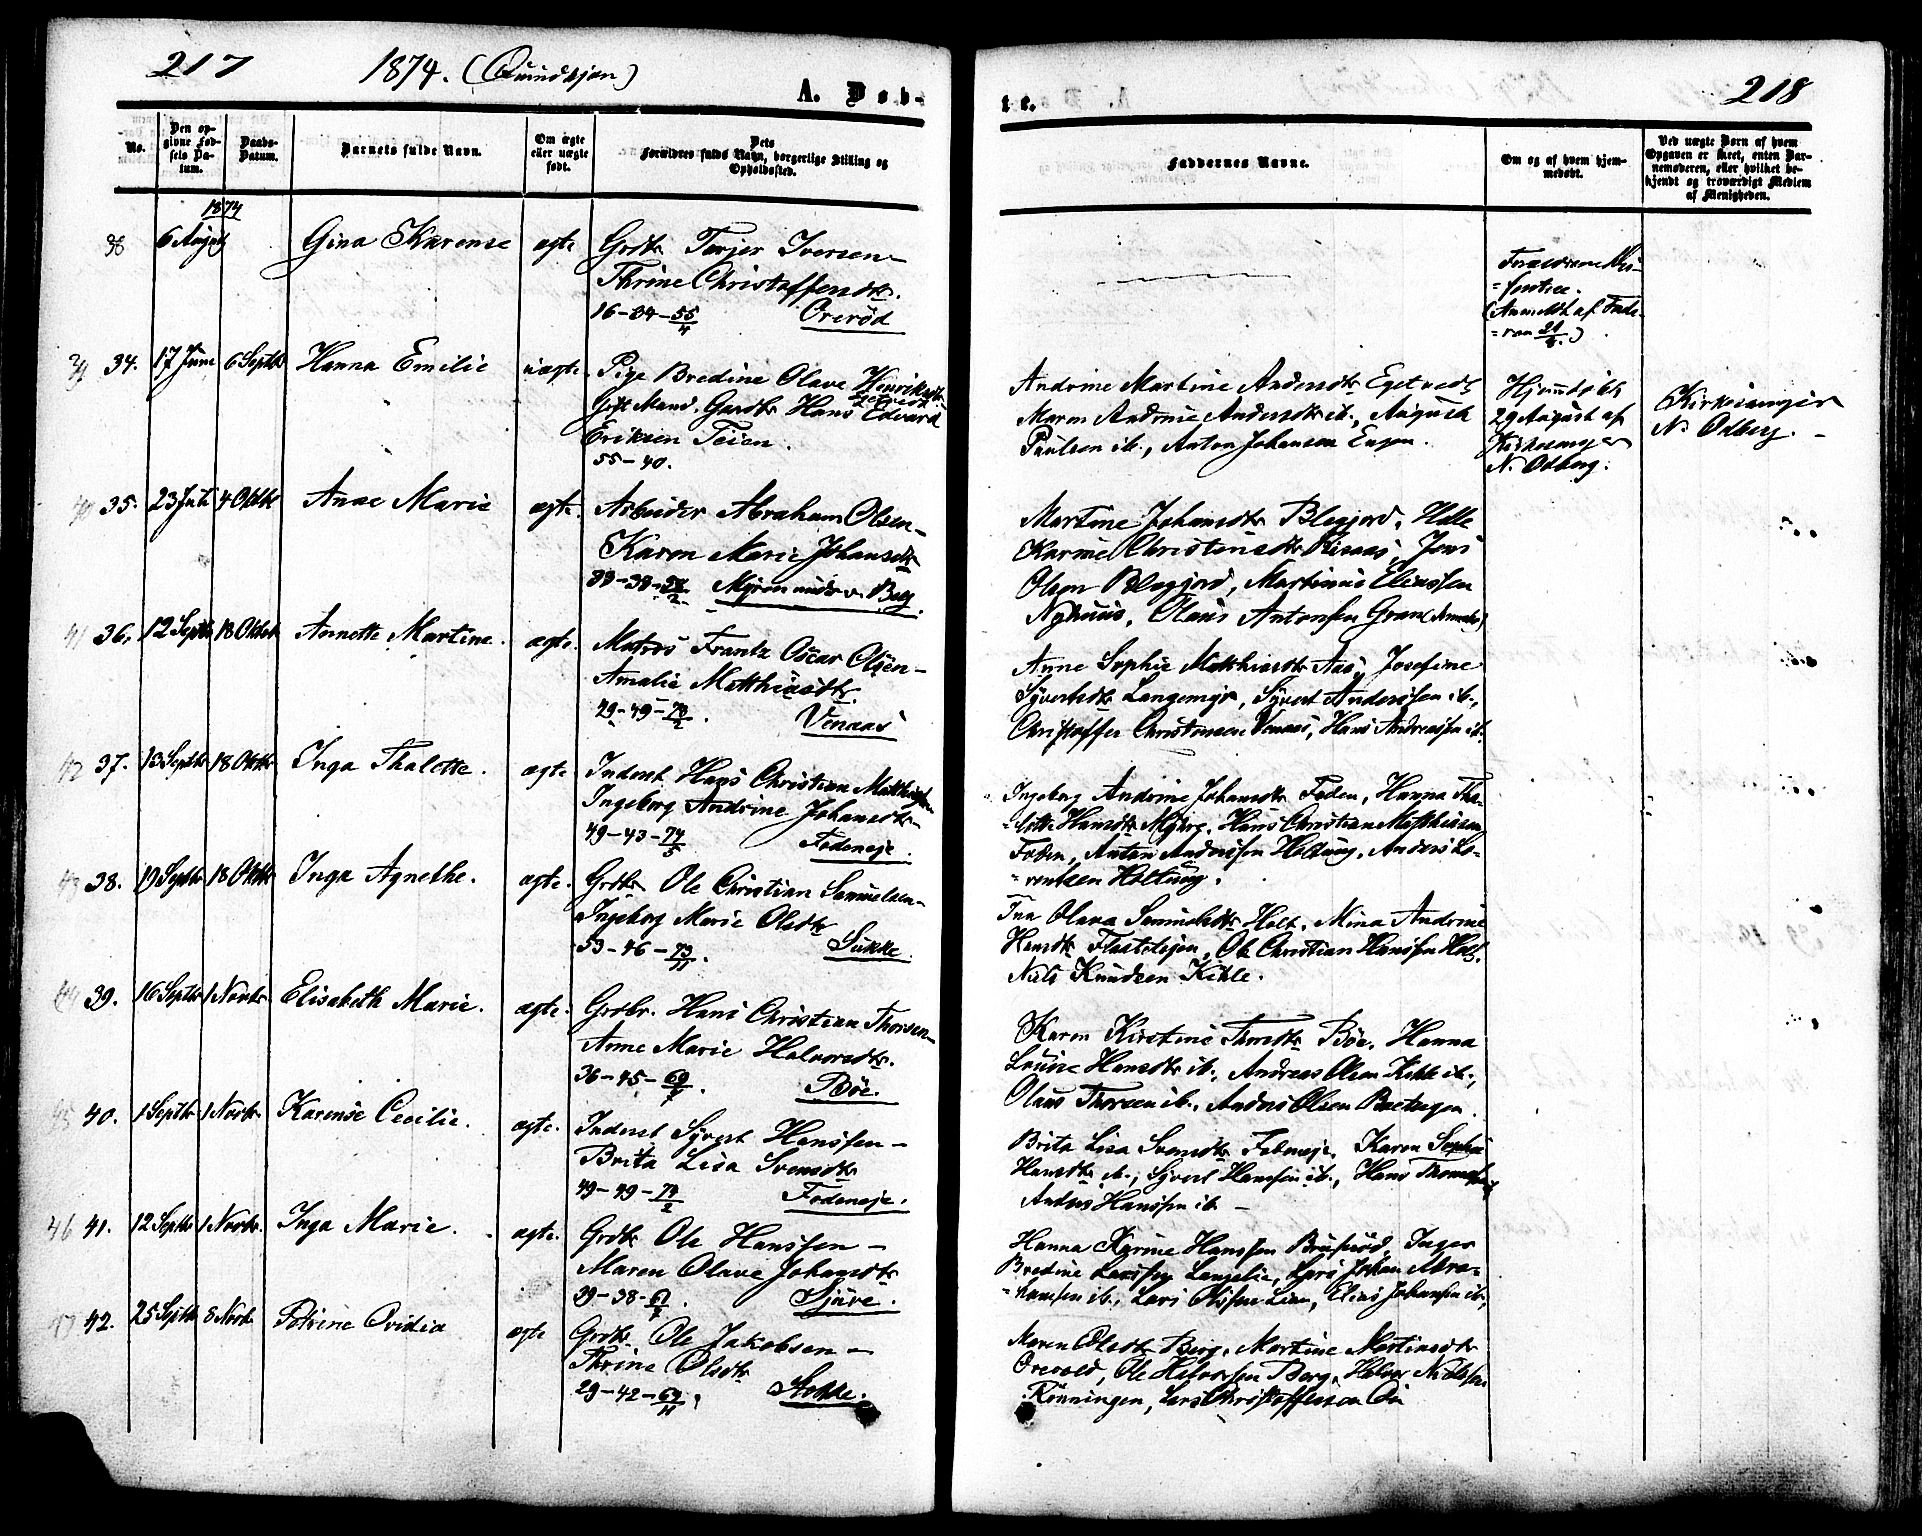 217
1874. (Qvindkjøn)
A. Døb-
No.
Den op-
givne Fød-
sels Da-
tum.
Daabs-
Datum.
Barnets fulde Navn.
Om ægte
eller uægte
født.
Dets
Forældres fulde Navn, borgerlige Stilling og
Opholdssted.
1874
38 6 August Gina Karense ægte Grdbr. Terjer Iversen -
Thrine Christoffersdtr.
16-34-55/4 Orerød
39 34. 17 Juni 6 Septbr Hanna Emilie uægte Pige Bredine Olave Henriksdtr
Gift Mand. Gaardbr Hans Edvard
Eriksen Teien.
55-40.
40 35. 23 Juli 4 Oktbr Anne Marie ægte. Arbeider Abraham Olsen -
Karen Marie Johansdtr
Myren under v. Berg.
41 36. 12 Septbr 18 Oktbr Annette Martine. ægte. Matros Frantz Oscar Olsen -
Amalie Matthiasdtr.
49-49-73/2. Venaas
42 37. 13 Septbr 18 Oktbr Inga Thalette. ægte Inderst Hans Christian Matthiasen
Ingeborg Andrine Johansdtr -
49-43-74/5 Fodeneje.
43 38. 19 Septbr 18 Oktbr Inga Agnethe. ægte. Grdbr Ole Christian Samuelsen -
Ingeborg Marie Olsdtr
53-46-73/11. Sukke.
44 39. 16 Septbr 1 Novbr Elisabeth Marie. ægte. Grdbr. Hans Christian Thorsen -
Anne Marie Halvorsdtr.
36-45- Bøe.
45 40. 1 Septbr 1 Novbr. Karense Cecilie. ægte. Inderst Syvert Hanssen -
Brita Lisa Svensdtr
49-49-74/2 Fodeneje.
46 41. 12 Septbr 1 Novbr. Inga Marie. ægte. Grdbr Ole Hanssen -
Maren Olave Johansdtr
39-38- Sjüve.
47 42. 25 Septbr 8 Novbr. Petrine Ovidia ægte Grdbr Ole Jakobsen -
Thrine Olsdtr
29-42-69/11. Stokke.
218
te.
Faddernes Navne.
Om og af hvem hjem-
medøbt.
Ved uægte Børn af hvem
Opgaven er skeet, enten Bar-
nemoderen, eller hvilket be-
kjendt og troværdigt Medlem
af Menigheden.
Forældrene Dis-
=sentere.
(Anmeldt af Fade-
=ren)
Andrine Martine Andersdtr Egetvedt
Maren Andrine Andersdtr ib., August
Paulsen ib., Anton Johansen
Hjemdøbt
29 August af
Kirkesanger
N. Odberg.
Kirkesanger
N. Odberg. -
Martine Johansdtr Blegjord, Helle
Karine Christensdtr Jens
Olsen Blegjord, Martinus Eliassen
Nyhuus, Olaus Antonsen Gran
Anne Sophie Matthiasdtr Aas, Josefine
Syvertsdtr Langemyr, Syvert Andersen ib.,
Christoffer Christensen Venaas, Hans Andreassen ib.
Ingeborg Andrine Johansdtr Foden, Hanna Tha-
=lette Hansdtr Myhre, Hans Christian Matthiasen
Foden, Anton Anderssen Holtung, Anders Lo-
=rentzen Holtung.
Ina Olava Samuelsdtr Holt, Mina Andrine
Hansdtr Ole Christian Hanssen Holt,
Nils Knudsen Kihle.
Karen Kirstine Thorsdtr Bøe, Hanna
Louise Hansdtr ib., Andreas Olsen Kihle ib.,
Olaus Thorsen ib., Anders Olsen
Brita Lisa Svensdtr Fodeneje, Karen Sophie
Hansdtr ib., Syvert Hanssen ib., Hans
Anders Hanssen ib -
Hanna Karine Hanssen Brüserød, Inger
Bredine Larsen Langelie, Lars Johan Abra-
=hamsen ib., Lars Olssen Lian, Elias Johansen ib.,
Maren Olsdtr Berg, Martine Martinsdtr
Orevold, Ole Halvorsen Berg, Halvor Nielsen
Rønningen, Lars Christoffersen